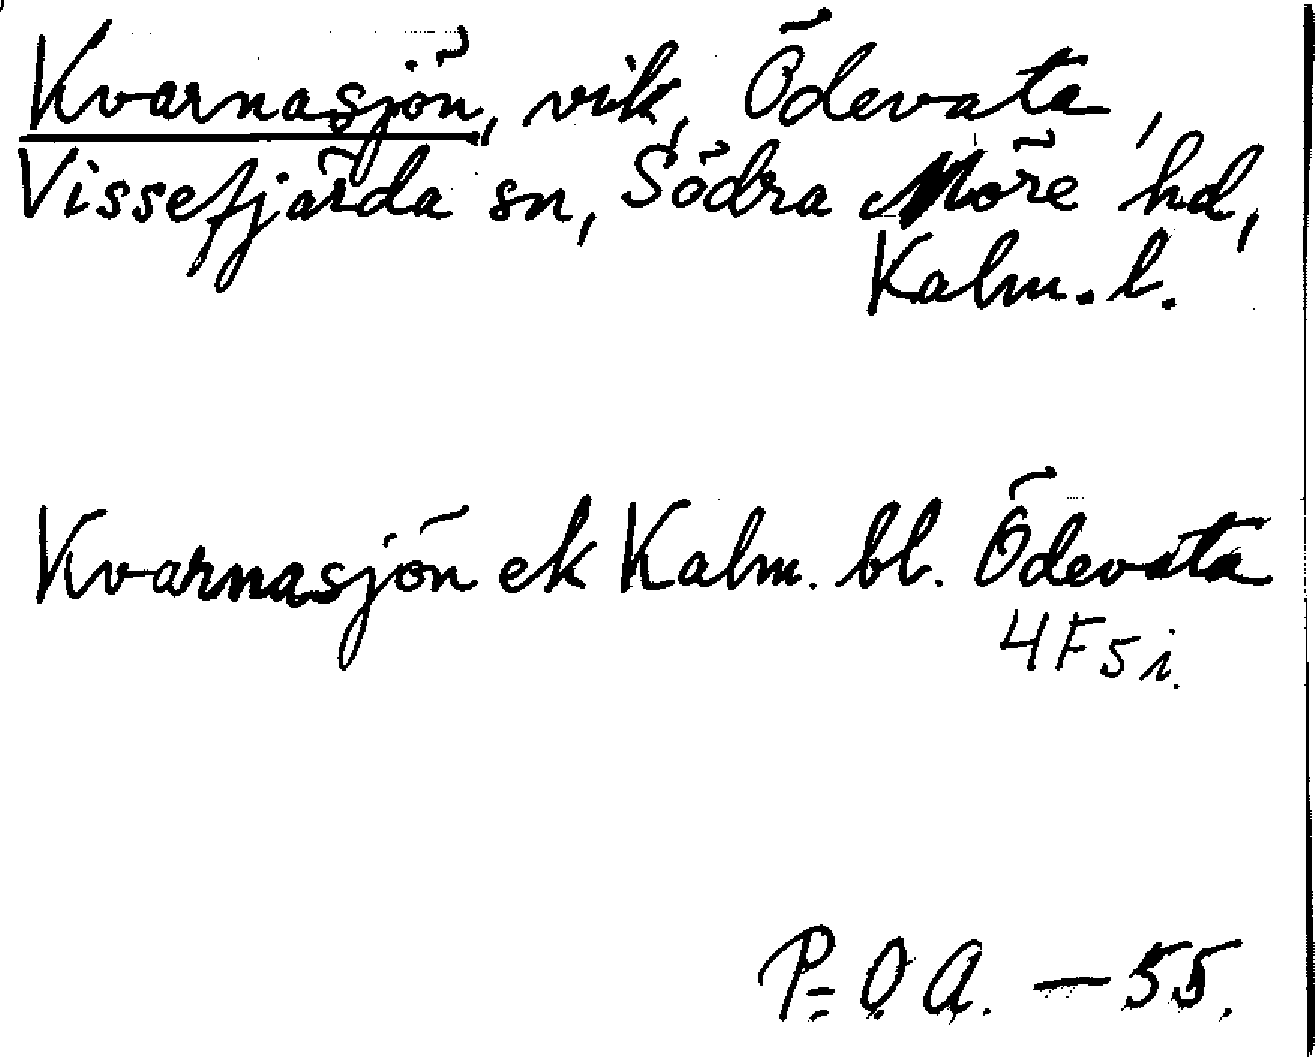 Kvarnasjön, vik, Ödevata,
Vissefjärda sn, Södra Möre hd,
Kalm. l.
Kvarnasjön ek Kalm. bl. Ödevata
4F5i.
P-O A. — 55.